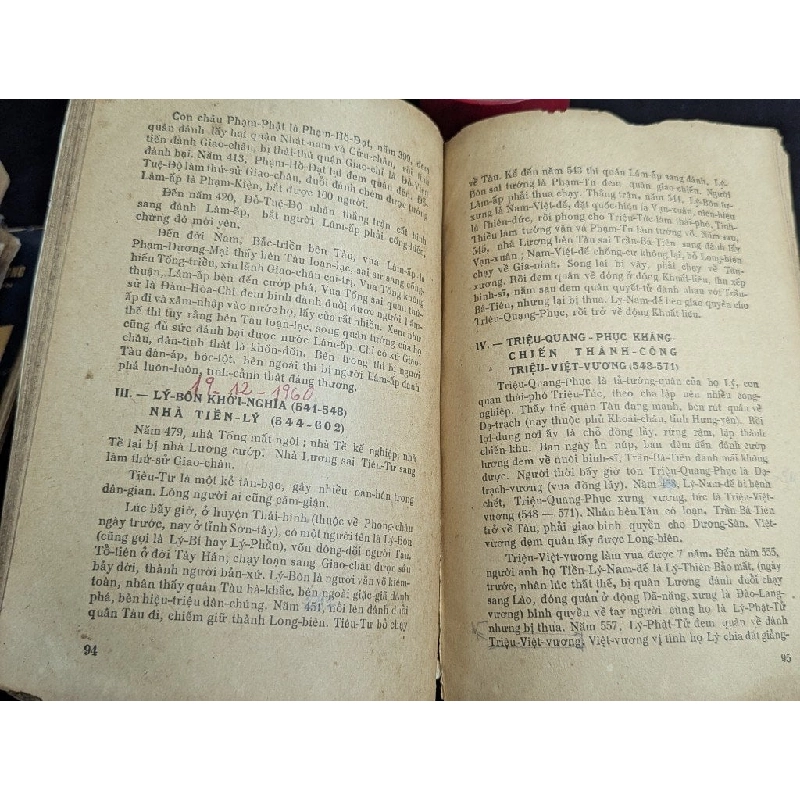 Con cháu Phạm-Phật là Phạm-Hồ-Đạt, năm 399, đem
quân đánh lấy hai quận Nhật-nam và Cửu-chân, rồi
tiến đánh Giao-châu, bị thái-thú quận Giao-chỉ là Đỗ-Viện
đánh bại. Năm 413, Phạm-Hồ-Đạt lại đem quân đến. Đỗ-
Tuệ-Độ làm thứ-sử Giao-châu, đuổi đánh chém được tướng
Lâm-ấp là Phạm-Kiện, bắt được 100 người.
Đến năm 420, Đỗ-Tuệ-Độ nhân thắng trận cất binh
sang đánh Lâm-ấp, bắt người Lâm-ấp phải cống-hiến,
chừng đó mới yên.
Đến đời Nam, Bắc-triều bên Tàu, vua Lâm-ấp là
Phạm-Dương-Mại thấy bên Tàu loạn-lạc, sai sứ sang cống-
hiến Tống-triều, xin lãnh Giao-châu cai-trị. Vua Tống không
thuận, Lâm-ấp bèn đến cướp phá. Vua Tống sai quan thứ-
sử là Đàm-Hòa-Chi đem binh đánh đuổi được người Lâm-
ấp đi và xâm-nhập vào nước họ, lấy của rất nhiều. Xem như
thế thì tùy rằng bên Tàu loạn-lạc, song quân tướng của họ
cũng đủ sức đánh bại được nước Lâm-ấp. Chỉ có xứ Giao-
châu, dân-tình thật là khốn-đốn. Bên trong thì bị người
Tàu đàn-áp, bóc-lột, bên ngoài thì bị người Lâm-ấp đánh
phá luôn-luôn, tình-cảnh thật đáng thương.
19-12-1960
III. — LÝ-BÔN KHỞI-NGHĨA (541-548)
NHÀ TIỀN-LÝ (544-602)
Năm 479, nhà Tống mất ngôi; nhà Tề kế nghiệp, nhà
Tề lại bị nhà Lương cướp. Nhà Lương sai Tiêu-Tư sang
làm thứ-sử Giao-châu.
Tiêu-Tư là một kẻ tàn-bạo, gây nhiều oan-hận trong
dân-gian. Lòng người ai cũng căm-giận.
Lúc bấy giờ, ở huyện Thái-bình (thuộc về Phong-châu
ngày trước, nay ở tỉnh Sơn-tây), có một người tên là Lý-Bôn
(cũng gọi là Lý-Bí hay Lý-Phần), vốn dòng-dõi người Tàu.
Tổ-tiên ở đời Tây Hán, chạy loạn sang Giao-châu được sáu
bảy đời, thành người bản-xứ. Lý-Bôn là người văn võ kiêm-
toàn, nhân thấy quân Tàu hà-khắc, bên ngoài giặc giã đánh
phá, bèn hiệu-triệu dân-chúng. Năm 451, nổi lên đánh đuổi
quân Tàu đi, chiếm giữ thành Long-biên. Tiêu-Tư bỏ chạy
94
về Tàu. Kế đến năm 543 thì quân Lâm-ấp sang đánh. Lý-
Bôn sai tướng là Phạm-Tu đem quân giao-chiến. Người
Lâm-ấp phải thua chạy. Thắng trận, năm 544, Lý-Bôn tự-
xưng là Nam-Việt-đế, đặt quốc hiệu là Vạn-xuân, niên-hiệu
là Thiên-đức, rồi phong cho Triệu-Túc làm thái-phó, Tinh-
Thiều làm tướng văn và Phạm-Tu làm tướng võ. Năm sau,
545, nhà Lương bên Tàu sai Trần-Bá-Tiên sang đánh lấy
Vạn-xuân; Nam-Việt-đế chống-cự không lại, bỏ Long-biên
chạy về Gia-ninh. Song lại bị vây, phải chạy về Tân-
xương. Rồi đem quân về đóng ở động Khuất-liêu, thu xếp
binh-sĩ, năm sau đem quân quyết-tử đánh nhau với Trần-
Bá-Tiên, nhưng lại bị thua. Lý-Nam-đế bèn giao quyền cho
Triệu-Quang-Phục, rồi trở về động Khuất liêu.
IV. — TRIỆU-QUANG-PHỤC KHÁNG-
CHIẾN THÀNH-CÔNG
TRIỆU-VIỆT-VƯƠNG (548-571)
Triệu-Quang-Phục là tả-tướng-quân của họ Lý, con
quan thái-phó Triệu-Túc, theo cha lập nên nhiều công-
nghiệp. Thấy thế quân Tàu đang mạnh, bèn rút quân về
Dạ-trạch (nay thuộc phủ Khoái-châu, tỉnh Hưng-yên). Bởi
lợi-dụng nơi ấy là chỗ đồng lầy, rừng rậm, lập thành
chiến-khu. Ban ngày ẩn núp, ban đêm đến đánh cướp
lương đem về nuôi binh-sĩ, Trần-Bá-Tiên đánh mãi không
được. Người thời bấy giờ tôn Triệu-Quang-Phục là Dạ-
trạch-vương (vua đồng lầy). Năm 548, Lý-Nam-đế bị bệnh
chết, Triệu-Quang-Phục xưng vương, tức là Triệu-Việt-
vương (548 — 571). Nhân bên Tàu có loạn, Trần Bá-Tiên
trở về Tàu, phải giao binh quyền cho Dương-Sàn. Việt-
vương đem quân lấy được Long-biên.
Triệu-Việt-vương làm vua được 7 năm. Đến năm 555,
người anh họ Tiền-Lý-Nam-đế là Lý-Thiên-Bảo mất, (ngày
trước, nhân lúc thất thế, bị quân Lương đánh đuổi chạy
sang Lào, đóng quân ở động Dã-năng, xưng là Đào-Lang-
vương) binh quyền về tay người cùng họ là Lý-Phật-Tử
nhưng bị thua. Năm 557, Lý-Phật-Tử đem quân về đánh
Triệu-Việt-vương, Việt-vương vị tình họ Lý chia đất giảng-
95